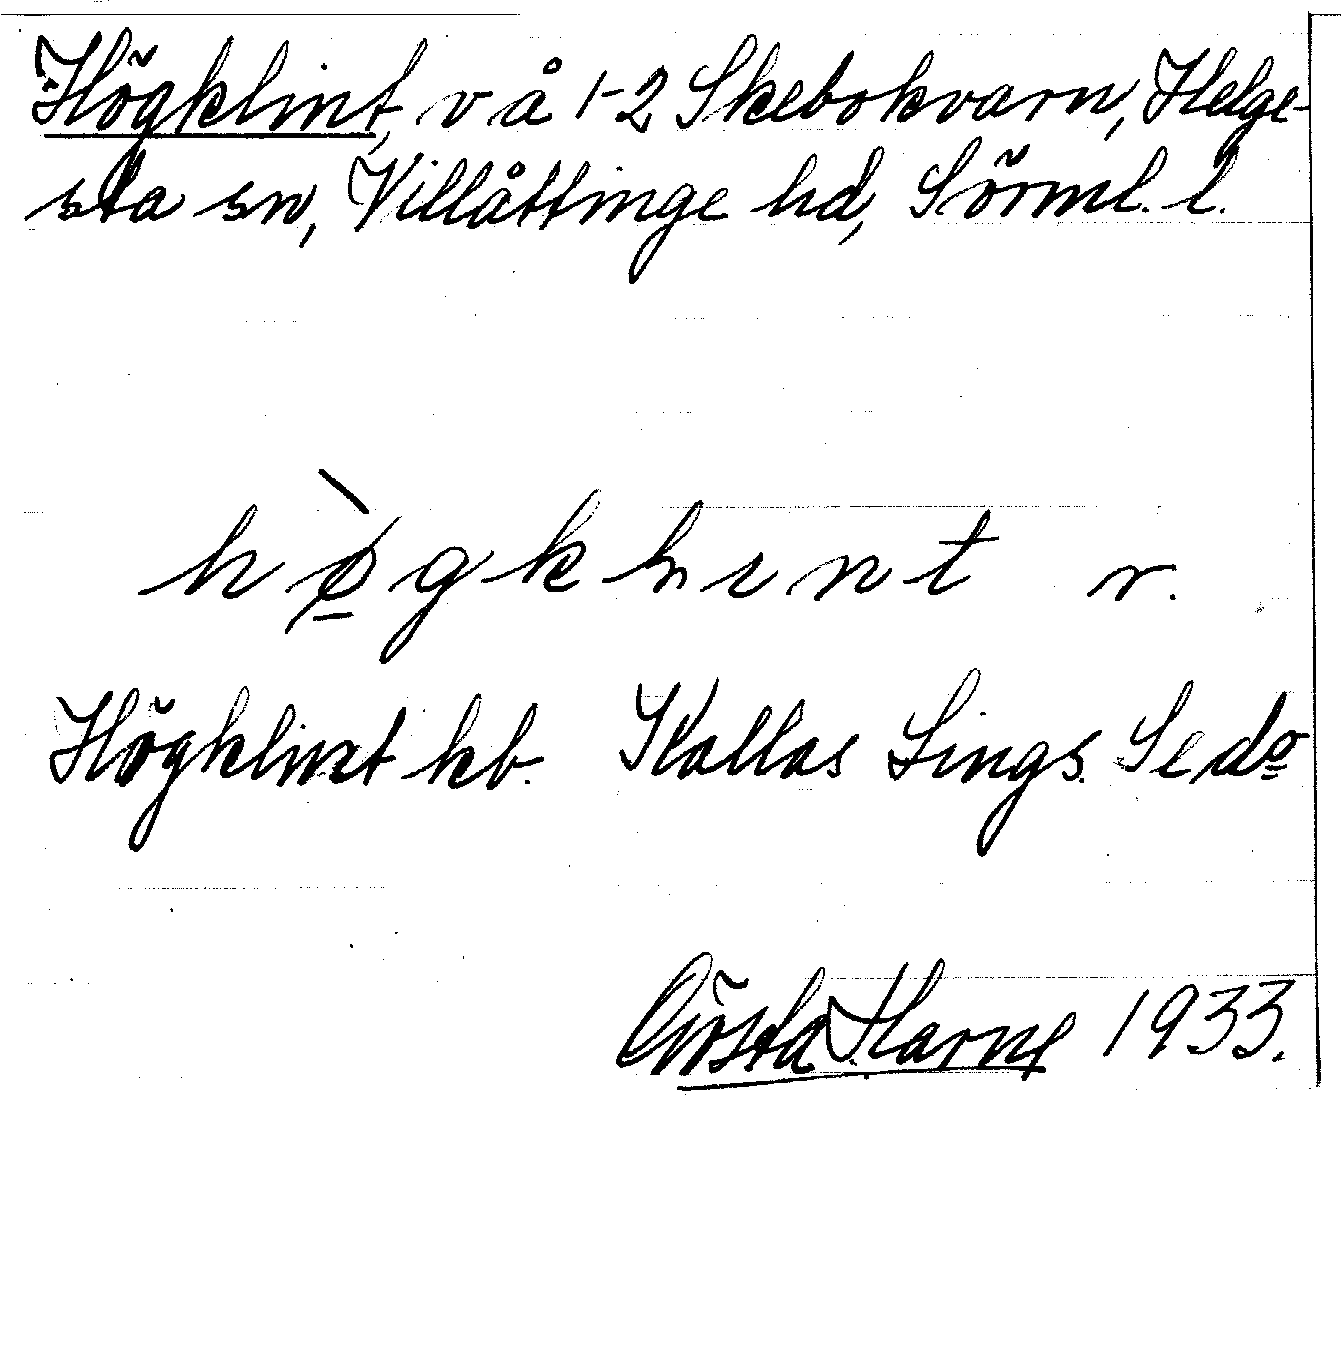 Högklint, v å 1-2 Skebokvarn, Helge-
sta sn, Villåttinge hd, Sörml. l.
hø̀gklınt r.
Högklint kb. Kallas Lings. Se do
Gösta Harne 1933.